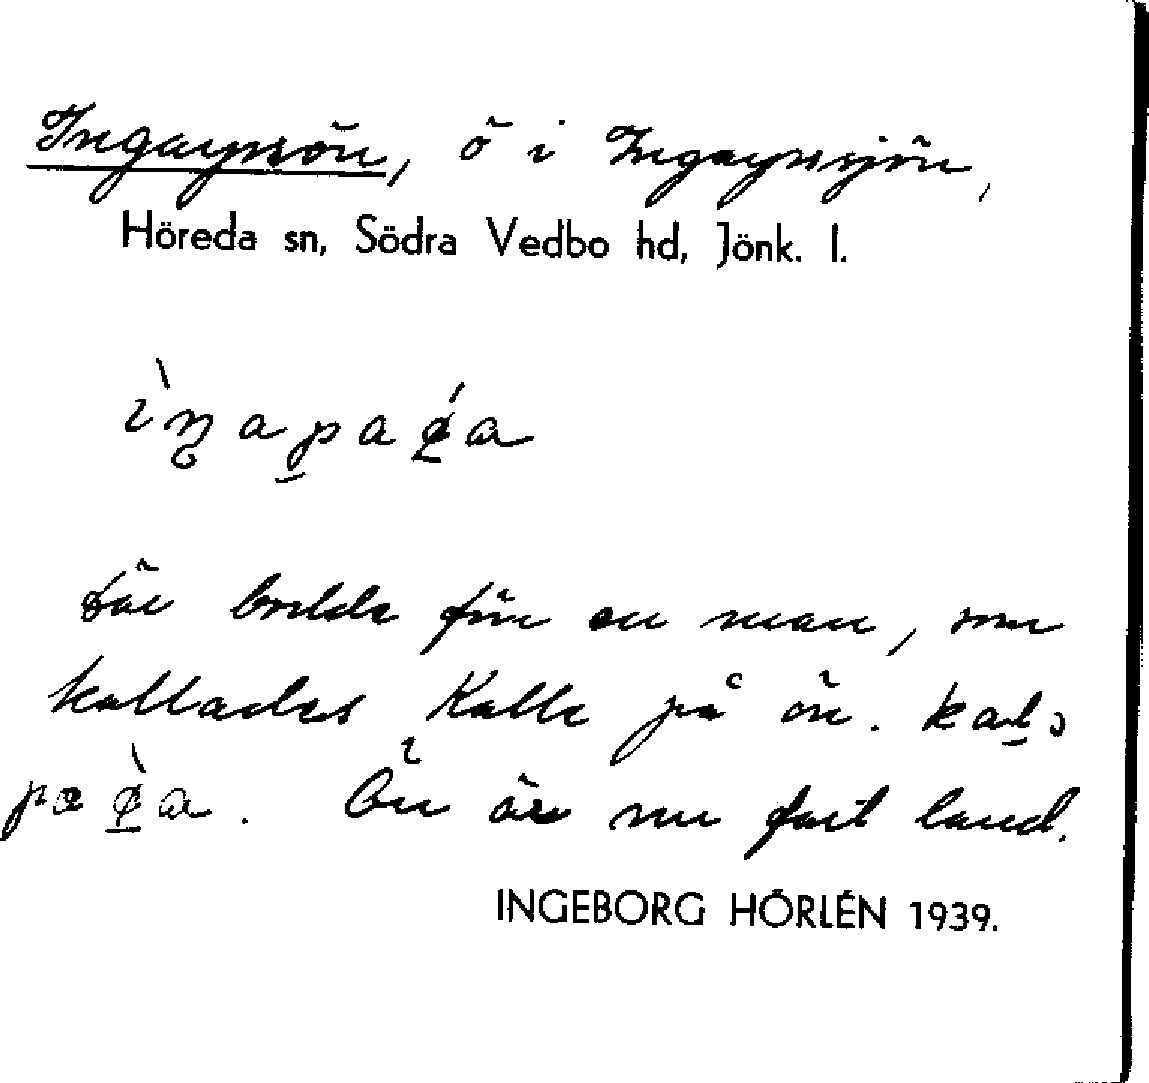 Ingarpsön, ö i Ingarpsjön,
Höreda sn, Södra Vedbo hd, Jönk. l.
Där bodde förr en man, som
kallades Kalle på ön.
Ön är nu fast land.
INGEBORG HÖRLÉN 1939.